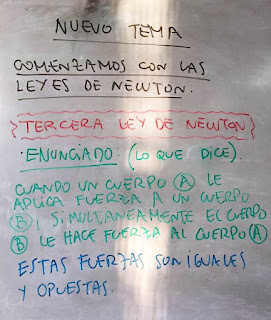 NUEVO TEMA
COMENZAMOS CON LAS
LEYES DE NEWTON.
{TERCERA LEY DE NEWTON}
ENUNCIADO: (LO QUE DICE).
CUANDO UN CUERPO Ⓐ LE
APLICA FUERZA A UN CUERPO
Ⓑ, SIMULTANEAMENTE EL CUERPO
Ⓑ LE HACE FUERZA AL CUERPO Ⓐ
ESTAS FUERZAS SON IGUALES
Y OPUESTAS.